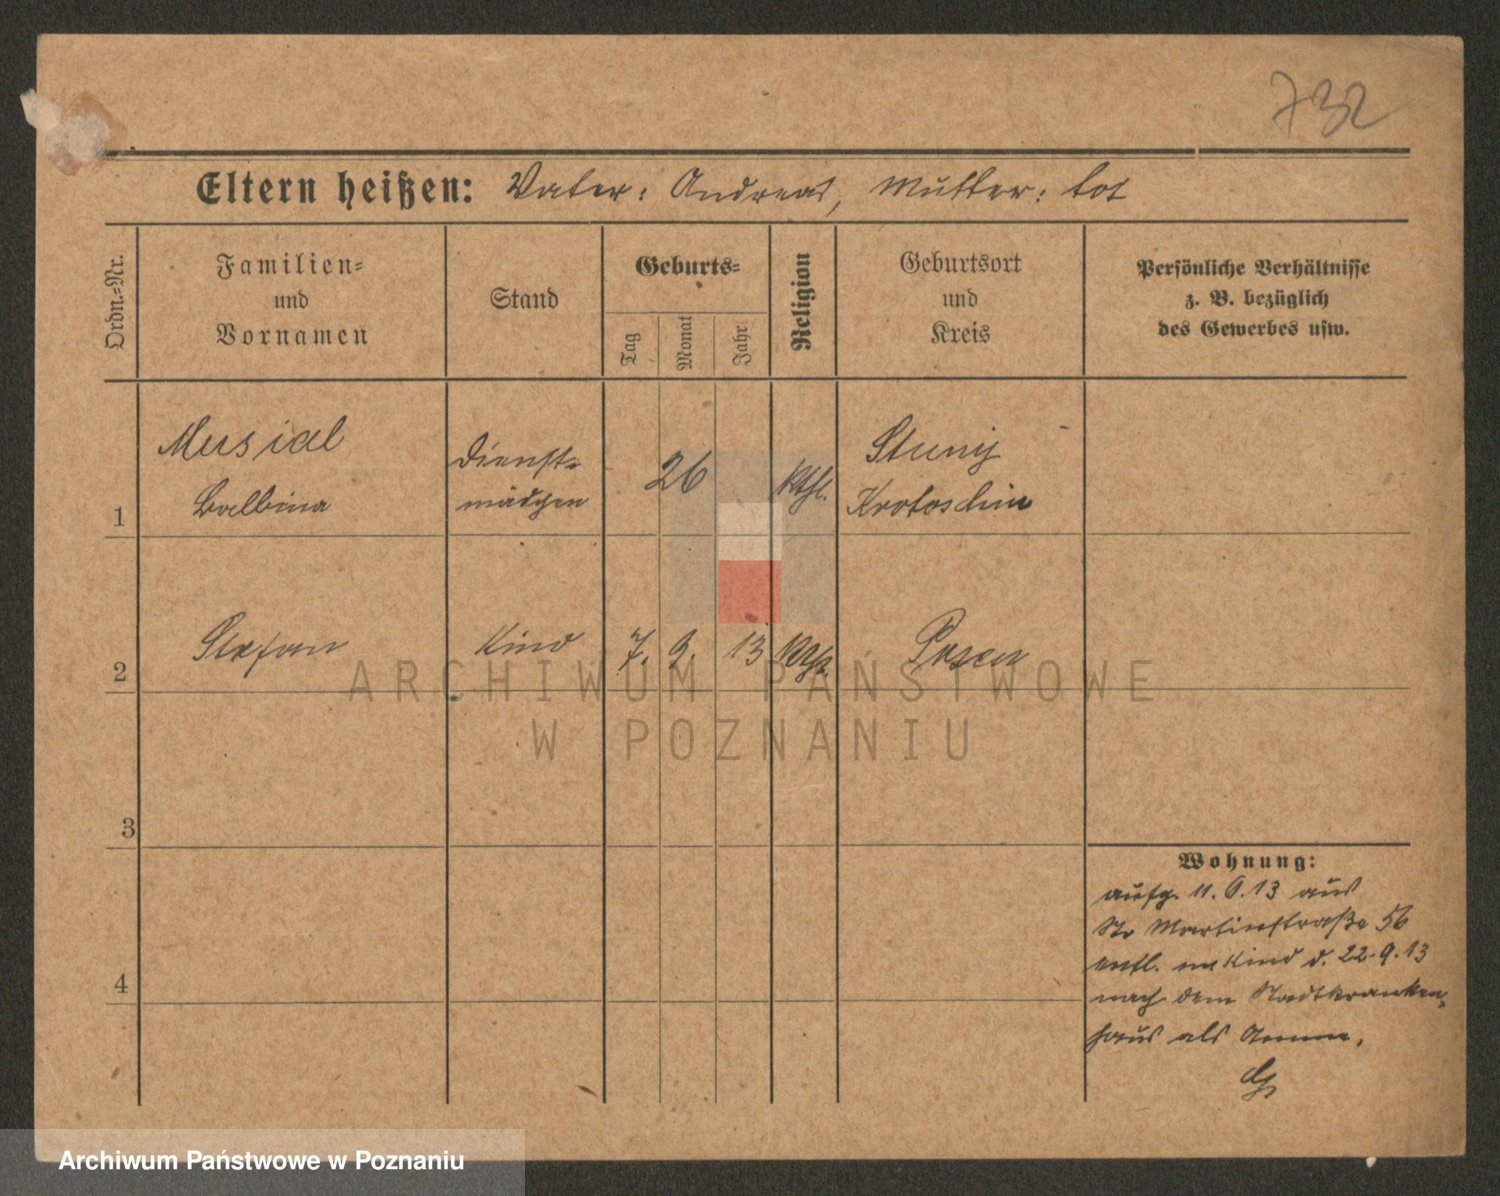 732
Eltern heißen: Vater: Andreas, Mutter: tot
Ordn.-Nr.
Familien-
und
Vornamen
Stand
Geburts-
Tag
Monat
Jahr
Religion
Geburtsort
und
Kreis
Persönliche Verhältnisse
z. B. bezüglich
des Gewerbes usw.
1
Musial
Balbina
Dienst-
mädchen
26
kthl.
Krotoschin
2
Stefan
Kind
7. 9. 13
kthl.
Posen
ARCHIWUM PAŃSTWOWE
W POZNANIU
3
4
Wohnung:
aufg. 11. 9. 13 aus
St. Martinstraße 56
entl. m Kind d. 22.9.13
nach dem Stadtkranken-
haus als Amme.
Archiwum Państwowe w Poznaniu